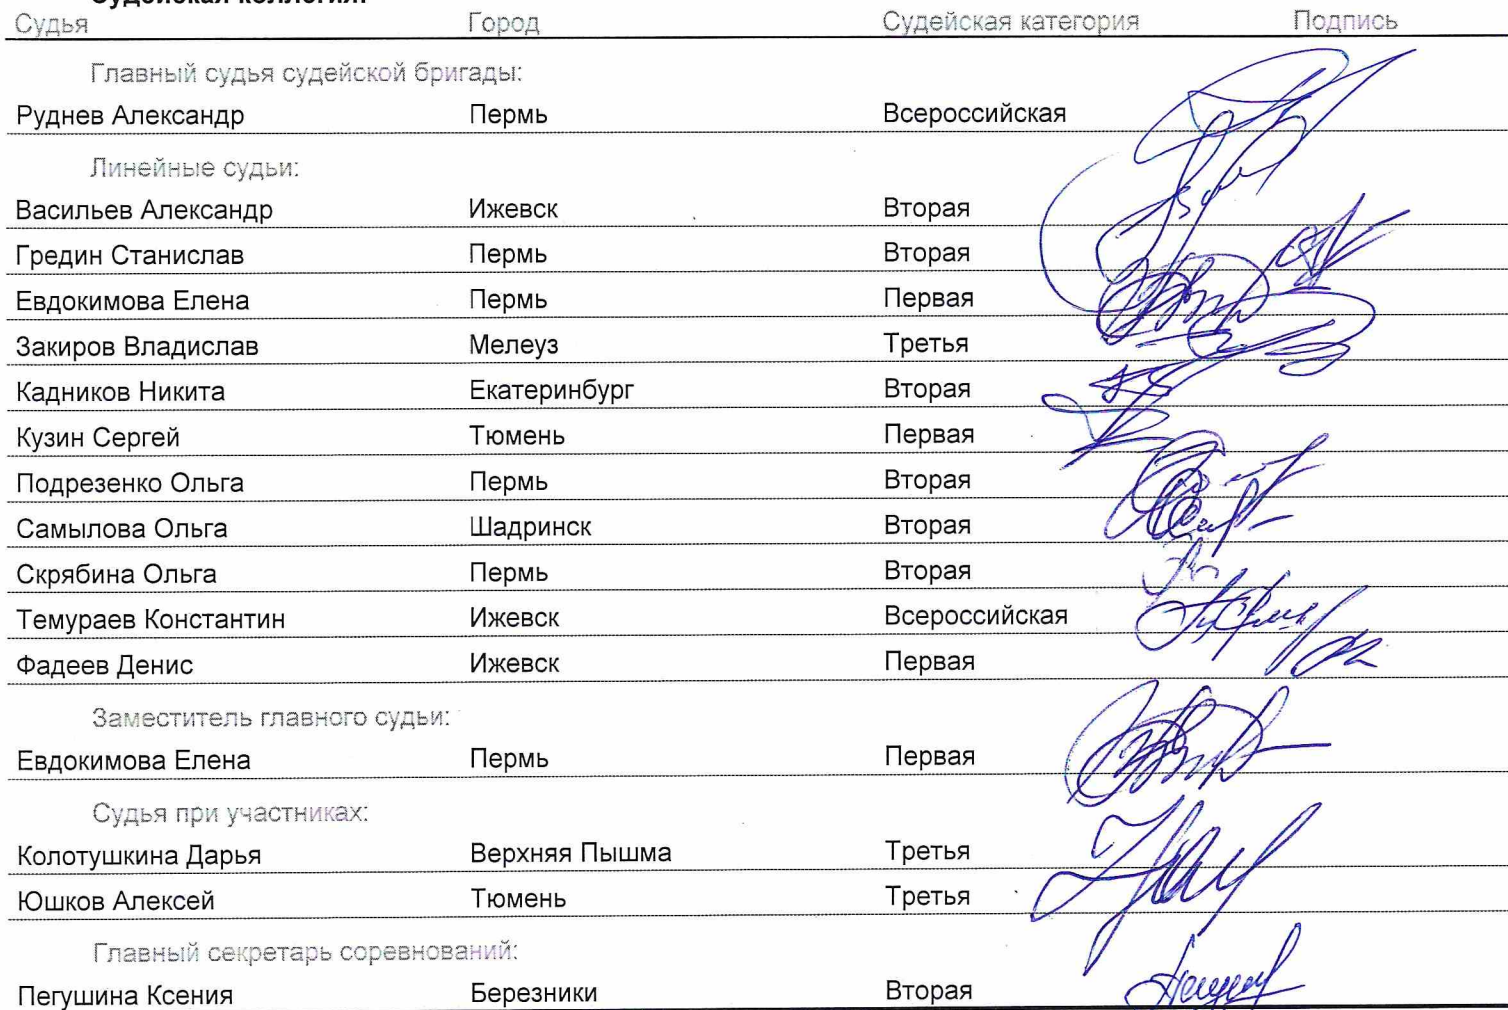 Судейская коллегия:
Судья Город Судейская категория Подпись
Главный судья судейской бригады:
Руднев Александр Пермь Всероссийская
Линейные судьи:
Васильев Александр Ижевск Вторая
Гредин Станислав Пермь Вторая
Евдокимова Елена Пермь Первая
Закиров Владислав Мелеуз Третья
Кадников Никита Екатеринбург Вторая
Кузин Сергей Тюмень Первая
Подрезенко Ольга Пермь Вторая
Самылова Ольга Шадринск Вторая
Скрябина Ольга Пермь Вторая
Темураев Константин Ижевск Всероссийская
Фадеев Денис Ижевск Первая
Заместитель главного судьи:
Евдокимова Елена Пермь Первая
Судья при участниках:
Колотушкина Дарья Верхняя Пышма Третья
Юшков Алексей Тюмень Третья
Главный секретарь соревнований:
Пегушина Ксения Березники Вторая